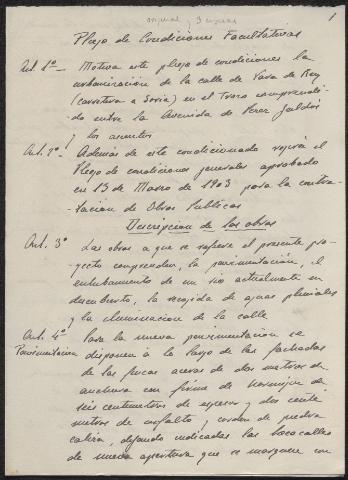 original y 3 copias
1
Pliego de Condiciones Facultativas
Art. 1º — Motiva este pliego de condiciones la
urbanización de la calle de Vara de Rey
(carretera a Soria) en el Trozo comprendi-
do entre la Avenida de Perez Galdós
y los
Art. 2º — Además de este condicionado regirá el
Pliego de condiciones generales aprobado
en 13 de Marzo de 1903 para la contra-
tación de Obras Publicas
Descripcion de las obras
Art. 3º Las obras a que se refiere el presente pro-
yecto comprenden, la pavimentación, el
entubamento de un rio actualmente en
descubierto, la recogida de aguas pluviales
y la iluminacion de la calle
Art. 4º Para la nueva pavimentación se
Pavimentacion disponen á lo largo de las fachadas
de las fincas aceras de dos metros de
anchura con firme de hormigon de
seis centimetros de espesor y dos centi
metros de asfalto, cordon de piedra
caliza, dejando indicadas las bocacalles
de nueva apertura que se marquen con